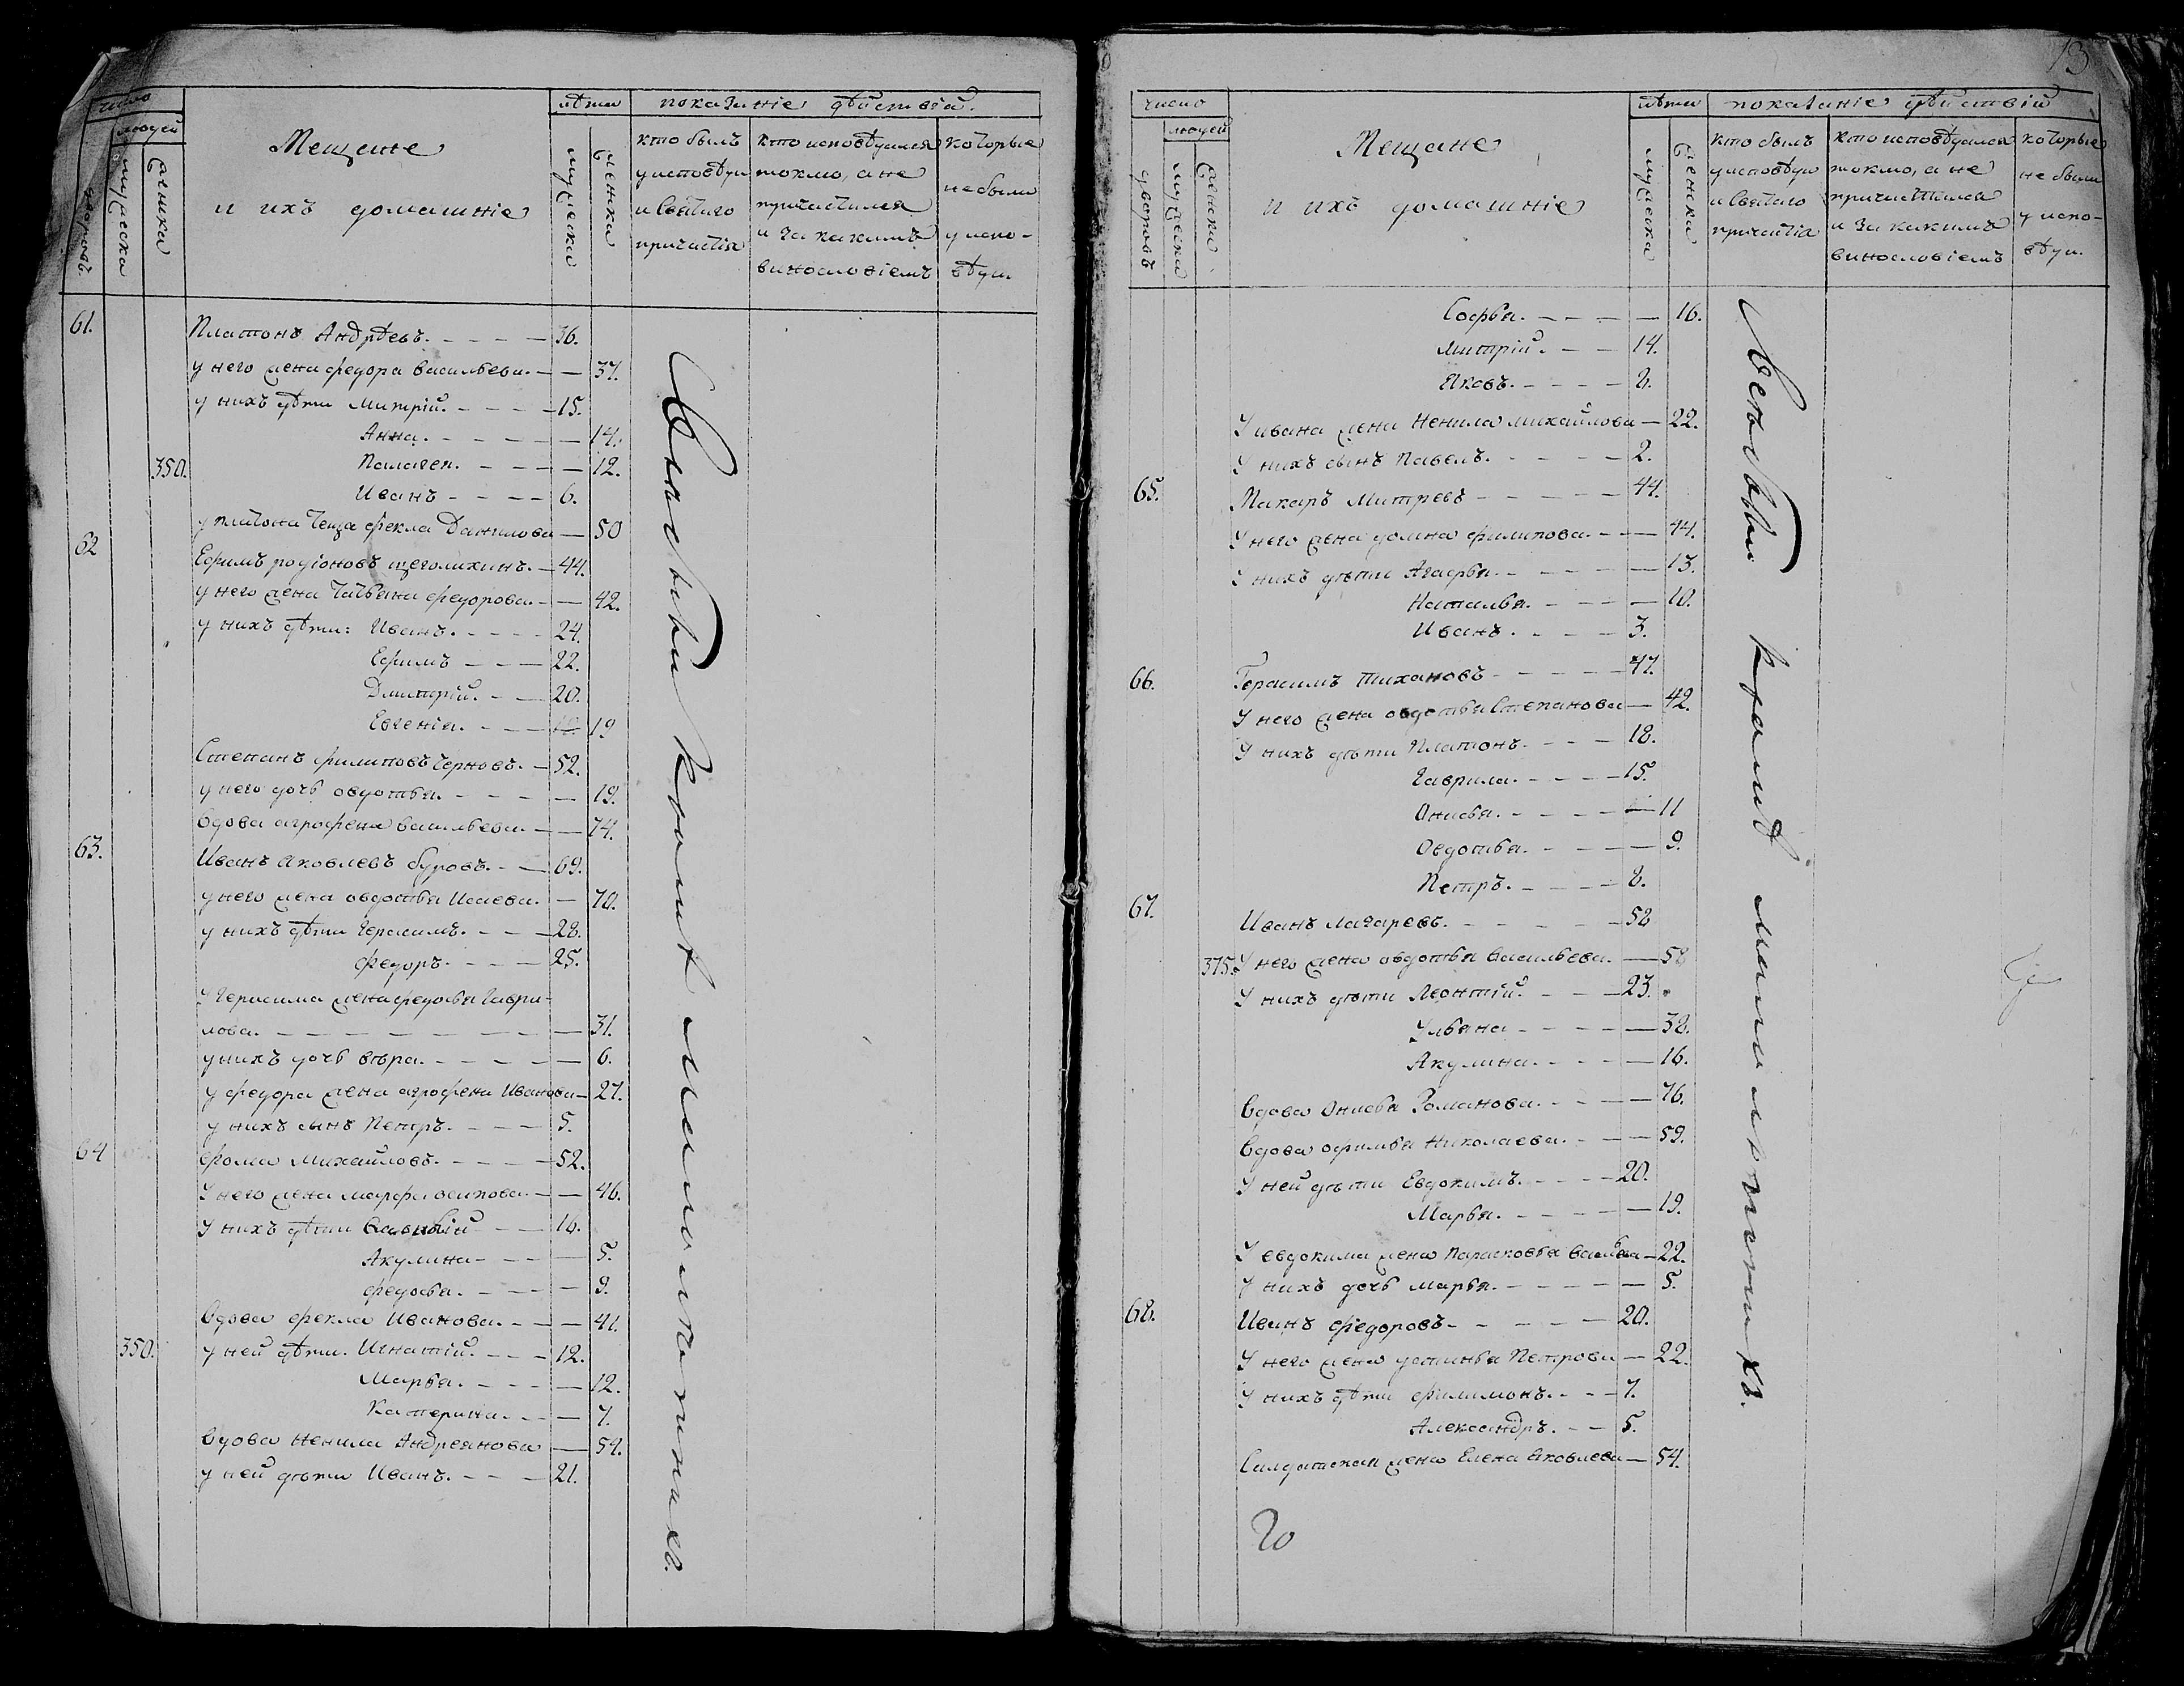 число
людей
дворовъ.
мужеска
женска
Мещане
и ихъ домашніе
лѣта
мужеска
женска
показаніе дѣйствія.
кто былъ
у исповѣди
и святаго
причастія
кто исповѣдался
токмо, а не
причастился
и за какимъ
винословіемъ
которые
не были
у испо-
вѣди.
61.
Платонъ Андрѣевъ. - - - - 36.
у него жена федора васильева. - — 37.
у нихъ дѣти Митрій. - - - - 15.
Анна. - - - - — 14.
350. Палагея. - - - - — 12.
Иванъ - - - - 6.
у платона теща фекла Данилова — 50
62
Ефимъ родіоновъ щеголихинъ. - 44.
у него жена татьяна федорова. - — 42.
у нихъ дѣти: Иванъ. - - - - 24.
Ефимъ - - - 22.
Дмитрій. - - 20.
Евгенія. - - - 19
Степанъ филиповъ Черновъ. - 52.
у него дочь овдотья. - - - - — 19.
вдова аграфена васильева. - — 74.
63.
Иванъ яковлевъ буровъ. - - 69.
у него жена овдотья Исаева. - — 70.
у нихъ дѣти Герасимъ. - - - 28.
федоръ. - - - - 25.
у Герасима жена федосья гаври-
лова. - - - - - - - — 31.
у нихъ дочь вѣра. - - - - — 6.
у федора жена аграфена Иванова - 27.
у нихъ сынъ Петръ. - - - - 5.
64
фома Михайловъ. - - - - 52.
У него жена марфа осипова. - — 46.
У нихъ дѣти - - 16.
Акулина - - - — 5.
федосья. - - - — 9.
вдова фекла Иванова. - - — 41.
350. у ней дѣти. Игнатій. - - - 12.
Марья. - - - - — 12.
Катерина. - - — 7.
вдова Ненила Андреянова — 54.
у ней дѣти Иванъ. - - - 21.
13
число
людей
дворовъ
мужеска
женска.
Мещане
и ихъ домашніе
лѣта
мужеска
женска
показаніе дѣйствій
кто былъ
у исповѣди
и святаго
причастія
кто исповѣдался
токмо, а не
причастился
и за какимъ
винословіемъ
которые
не были
у испо-
вѣди.
Софья. - - - - — 16.
Митрій. - - - 14.
Яковъ. - - - - 8.
У ивана жена Ненила михайлова — 22.
У нихъ сынъ Павелъ. - - - - 2.
65.
Макаръ Митревъ - - - - - 44.
У него жена домна филипова. - - — 44.
У нихъ дѣти Агафья. - - - - — 13.
Наталья. - - - — 10.
Иванъ. - - - - 3.
66.
Герасимъ тихановъ - - - - - 47.
У него жена овдотья Степанова — 42.
У нихъ дѣти Платонъ. - - - 18.
Гаврила. - - - - 15.
Онисья. - - - - — 11
Овдотья. - - - — 9.
Петръ. - - - - 8.
67.
Иванъ лазаревъ. - - - - - - 58
375. У него жена овдотья васильева. — 58
У нихъ дѣти Леонтій. - - - 23.
Ульяна - - - - — 38.
Акулина. - - - — 16.
вдова Онисья Романова. - - - — 76.
вдова офимья Николаева. - - — 59.
У ней дѣти Евдокимъ. - - - - 20.
Марья. - - - - — 19.
У евдокима жена Парасковья — 22.
У нихъ дочь марья. - - - - — 5.
68.
Иванъ федоровъ - - - - - 20.
У него жена устинья Петрова — 22.
У нихъ дѣти филимонъ. - - - 7.
Александръ. - - 5.
Салдатская жена Елена яковлева — 54.